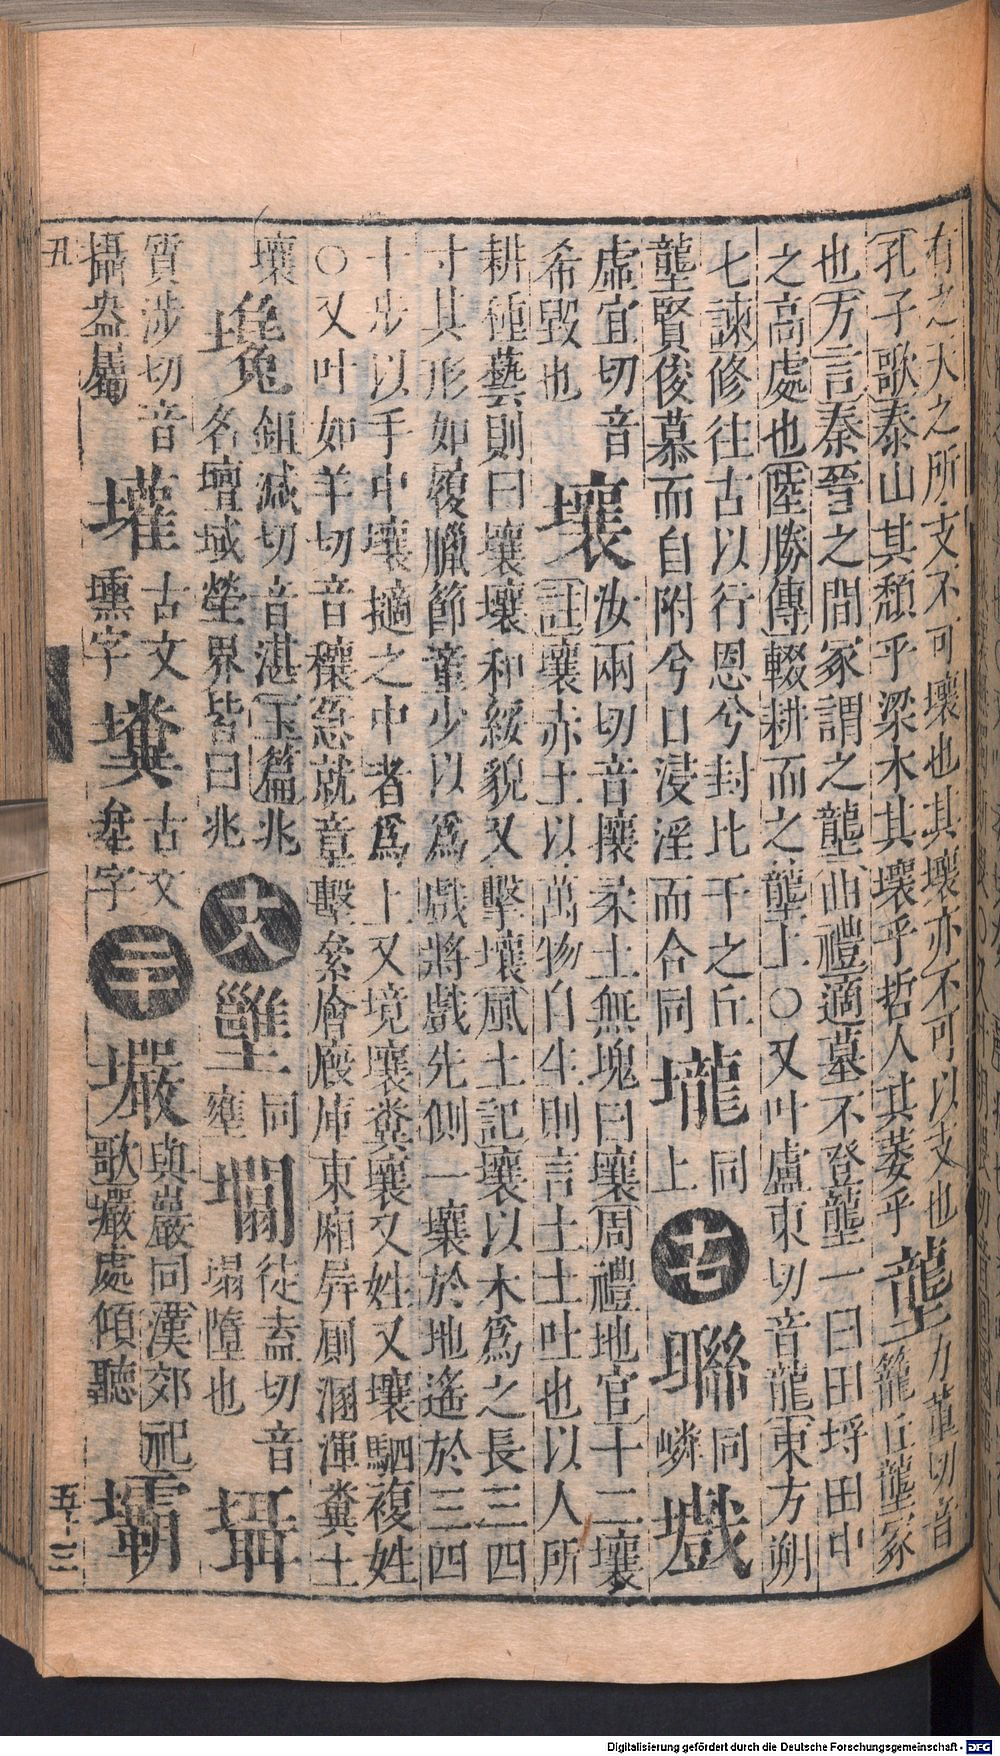 有之天之所支不可壞也其壞亦不可以支也
孔子歌泰山其頹乎梁木其壞乎哲人其萎乎
壟
力董切音
籠丘壟冢
也方言秦晉之間冢謂之壟曲禮適墓不登壟一曰田埒田中
之高處也陳勝傳輟耕而之壟上○又叶盧東切音龍東方朔
七諫修往古以行恩兮封比干之丘壟賢俊慕而自附兮日浸淫而合同
壠
同上
十七
壣
同嶙
㙪
虛宜切音
希毀也
壤
汝兩切音攘柔土無塊曰壤周禮地官十二壤
註壤赤土以萬物自生則言土土吐也以人所
耕種藝則曰壤壤和緩貌又擊壤風土記壤以木爲之長三四
寸其形如履臘節童少以爲戲將戲先側一壤於地遙於三四
十步以手中壤擿之中者爲上又境壤糞壤又姓又壤駟複姓
○又叶如羊切音穰急就章墼絫廥廄庫東廂屛厠溷渾糞土
壤
㙻
鉏減切音湛玉篇兆
名壇域塋界皆曰兆
十八
壅
同
壅
徒盍切音
塌墮也
質涉切音
攝盎屬
古文
壎字
古文
𡊄字
二十
巖
與巖同漢郊祀
歌巖處傾聽
壩
丑
五十三
Digitalisierung gefördert durch die Deutsche Forschungsgemeinschaft - DFG